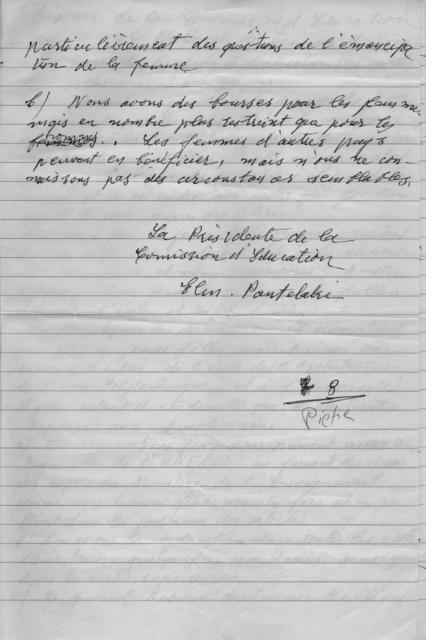 particulièrement des questions de l'émancipa
tion de la femme
b) Nous avons des bourses pour les femme
mais en nombre plus restreint que pour les
femmes. Les femmes d'autres pays
peuvent en bénéficier, mais nous ne con-
naissons pas des circonstances semblables.
La Présidente de la
Comission d'Education
Pantelaki
8